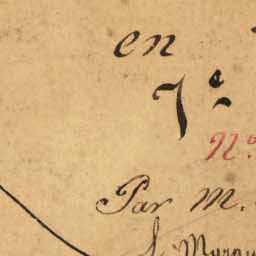 en
7e
No
Par M.